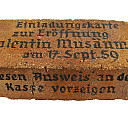 Einladungskarte
zur Eröffnung
Valentin Musänm
am 17. Sept. 59
diesen Ausweis an der
Kasse vorzeigen